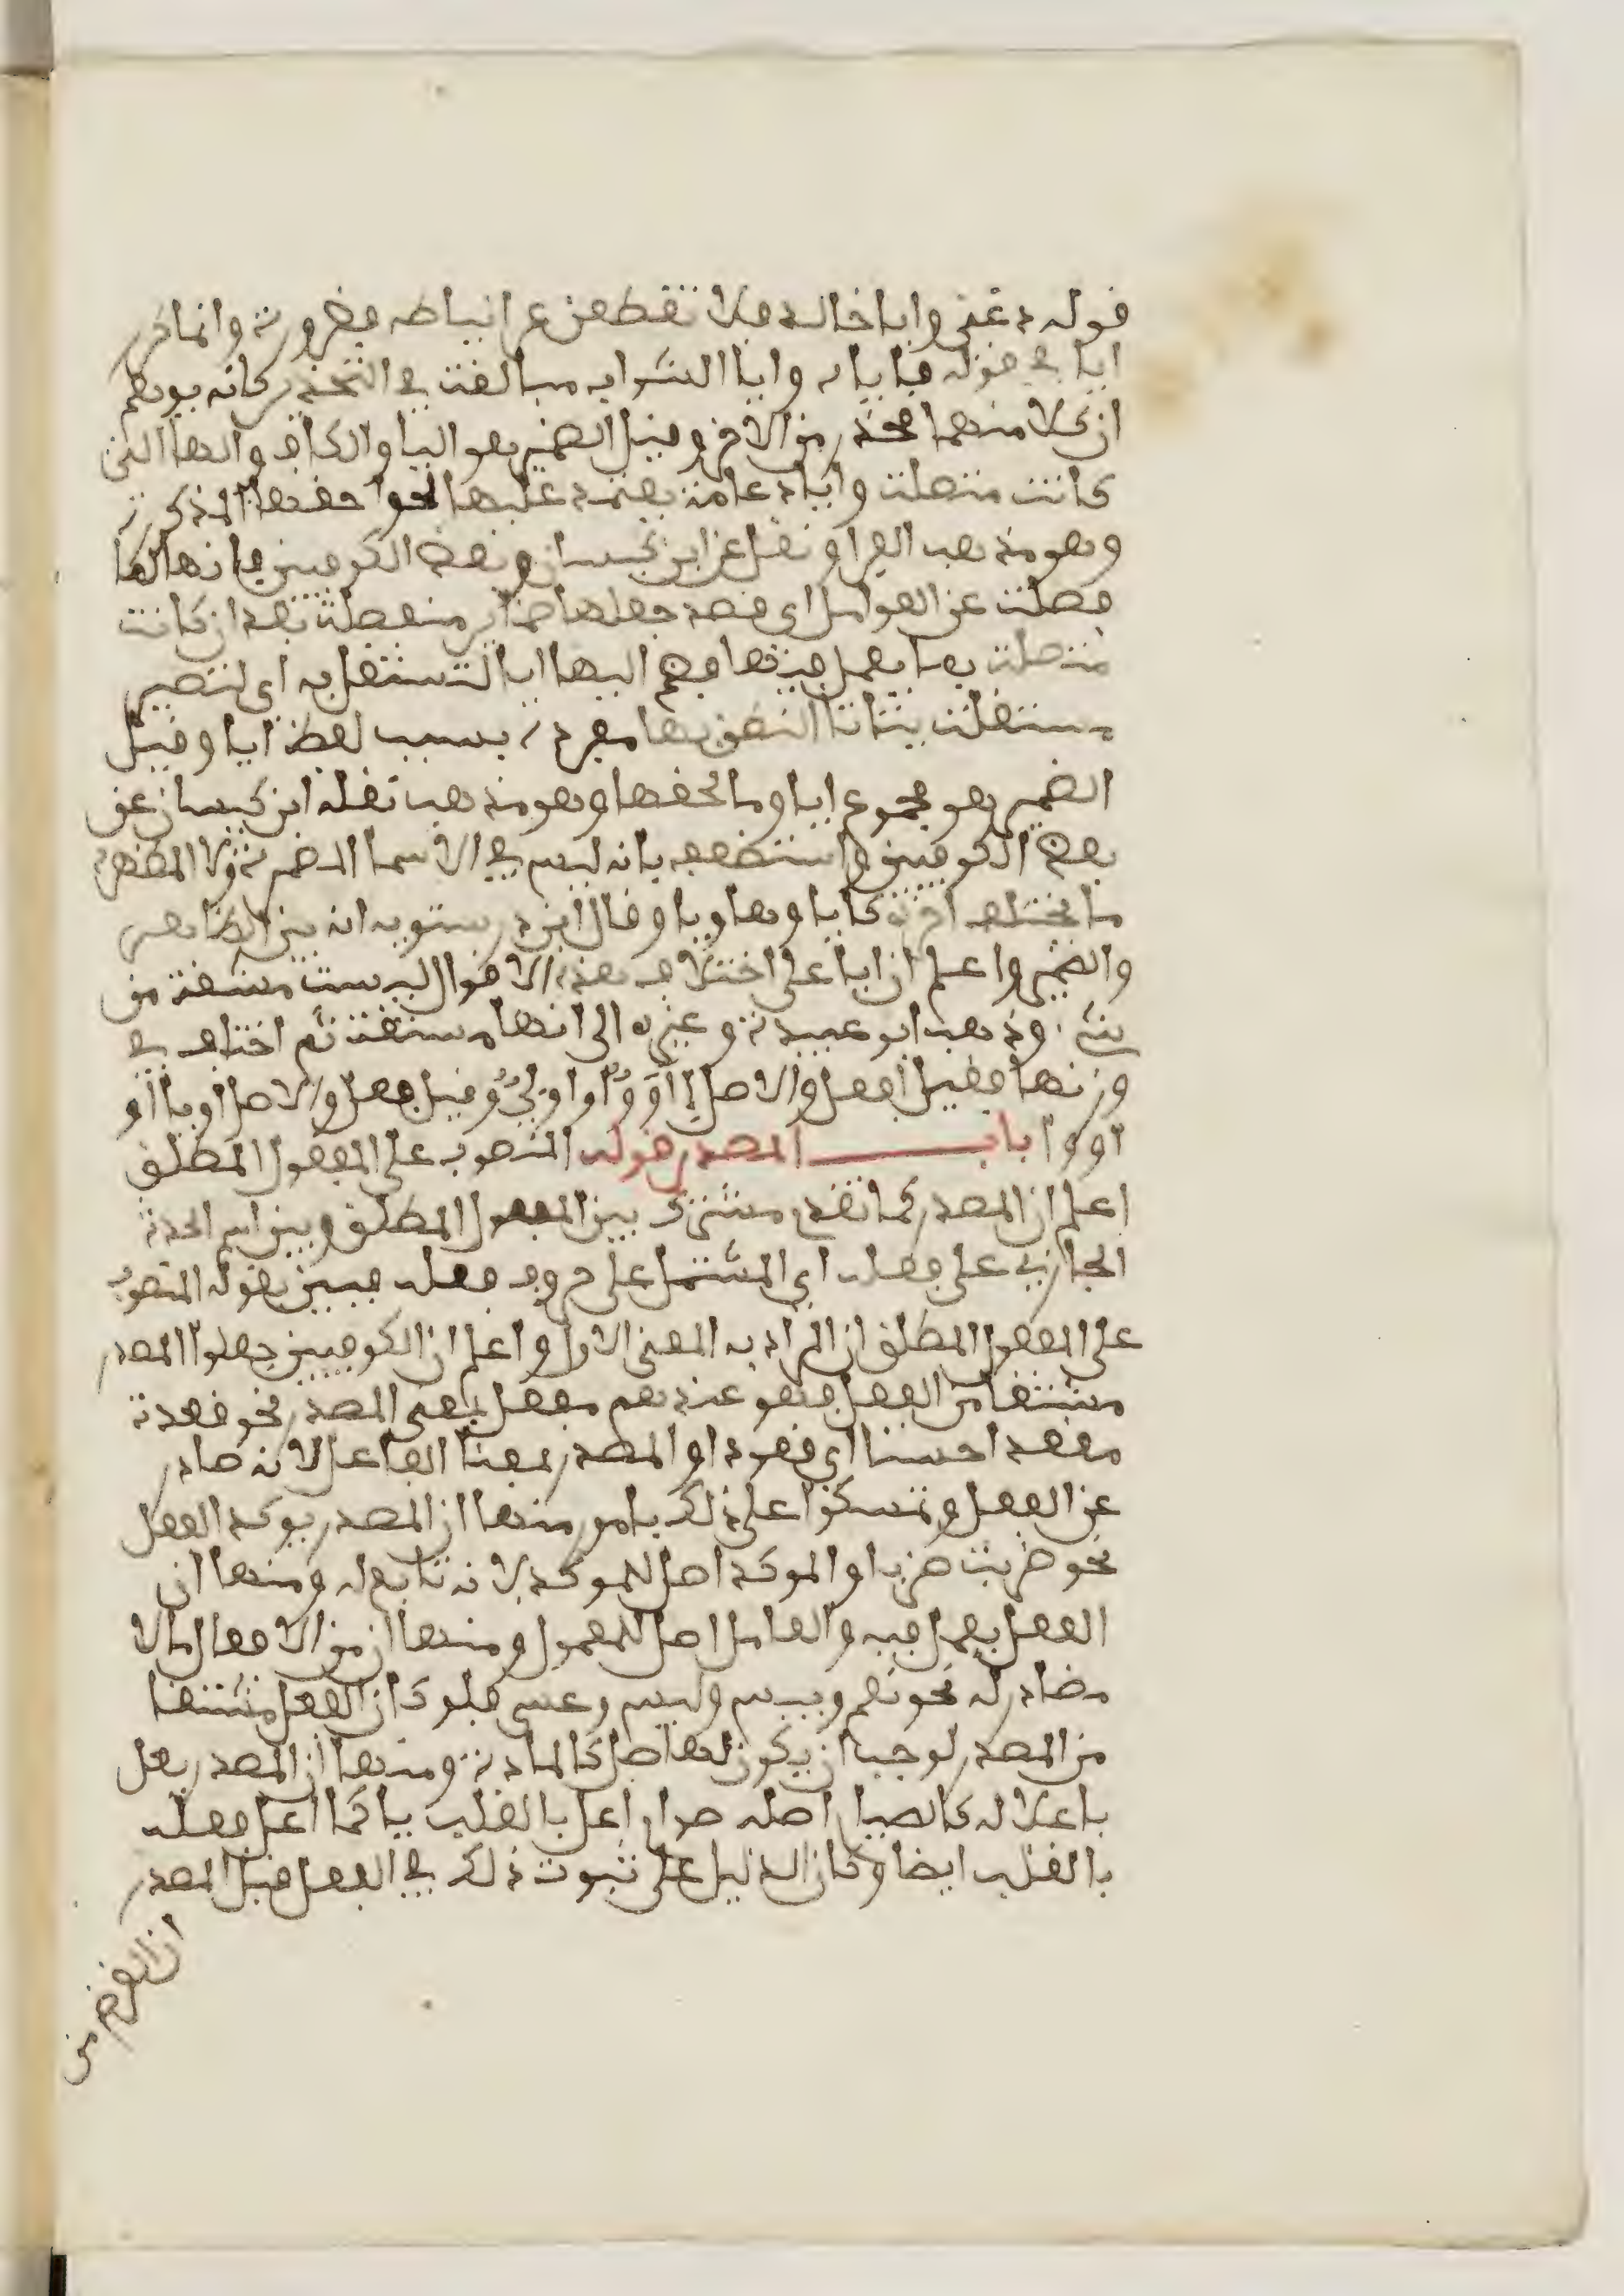 قوله دعني وايا خالد فلا تقطعن عرا نياطه فضرورة وانما كرر
ايا في قوله فاياه وايا الشواب مبالغة في التحذير كانه يوهم
ان كلا منهما محذر من الاخر وقيل الضمير هو اليا والكاف والها التي
كانت متصلة وايا دعامة يعتمد عليها لحوا حقها المذكرة
وهو مذهب الفرا ونقل عن ابن كيسان وبعض الكوفيين فانها لما
فصلت عن العوامل اى قصد جعلها ضماير منفصلة بعد ان كانت
متصلة بما يعمل فيها فضم اليها ايا لتستقل به اى لتصير
مستقلة يتاتا النطق بها مفردة بسبب لفظ ايا وقيل
الضمير هو مجموع ايا وما لحقها وهو مذهب نقله ابن كيسان عن
بعض الكوفيين واستضعف بانه ليس في الاسما المضمرة ولا المظهرة
ما يختلف اخره كايا وها ويا وقال ابن درستويه انه بين الظاهر
والضمير واعلم ان ايا على اختلاف هذه الاقوال ليست مشتقة من
شئ وذهب ابو عبيدة وغيره الى انها مشتقة ثم اختلف في
وزنها فقيل افعل والاصل اأوو او اويي وقيل فعل والاصل اويا او
اووا باب المصدر قوله المنصوب على المفعول المطلق
اعلم ان المصدر كما تقدم مشترك بين المفعول المطلق وبين اسم الحدث
الجاري على فعله اى المشتمل على حروف فعله فبين بقوله المنصوب
على المفعول المطلق ان المراد به المعنى الاول واعلم ان الكوفيين جعلوا المصدر
مشتقا من الفعل فهو عندهم مفعل بمعنى المصدر نحو قعدت
مقعدا حسنا اى قعودا او المصدر بمعنا الفاعل لانه صادر
عن الفعل وتمسكوا على ذلك بامور منها ان المصدر يوكد الفعل
نحو ضربت ضربا والموكد اصل للموكد لانه تابع له ومنها ان
الفعل يعمل فيه والعامل اصل للمعمول ومنها ان من الافعال ما لا
مصادر له نحو نعم وبيس وليس وعسى فلو كان الفعل مشتقا
من المصدر لوجب ان يكون لها اصل كالمادة ومنها ان المصدر يعل
باعلاله كالصيام اصله صوام اعل بالقلب يا كما اعل فعله
بالقلب ايضا وكان الدليل على ثبوت ذلك في الفعل قبل المصدر
ان الغرض من